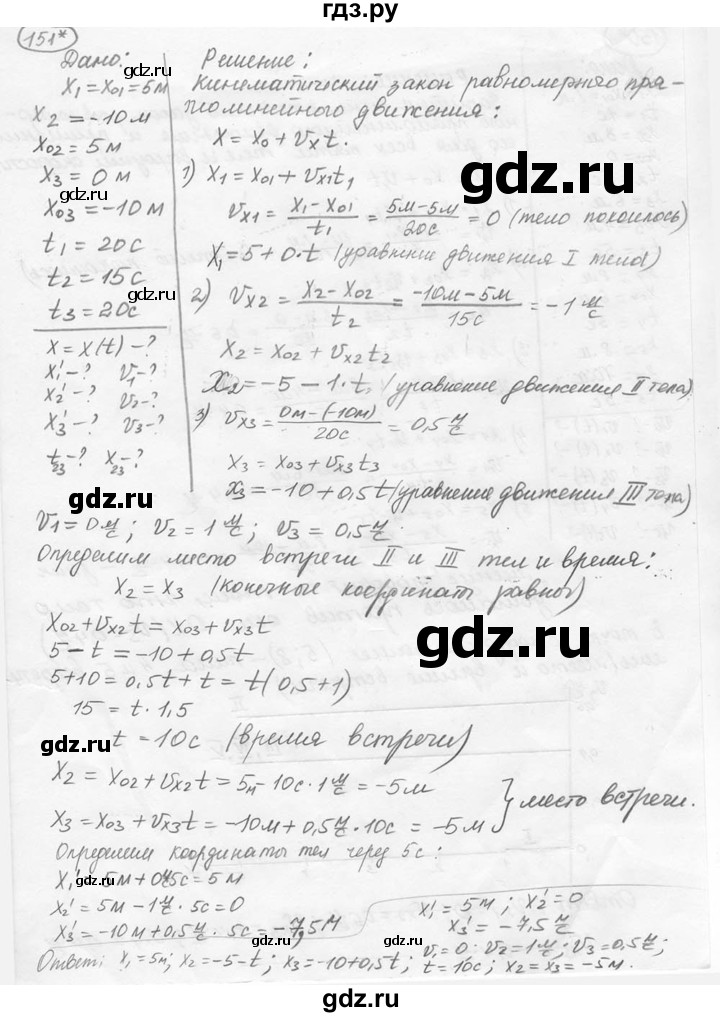 гдз.ру
151*
Дано:
X₁ = X₀₁ = 5м
X₂ = -10 м
X₀₂ = 5 м
X₃ = 0 м
X₀₃ = -10 м
t₁ = 20с
t₂ = 15с
t₃ = 20с
X = X(t) - ?
X₁' - ? V₁ - ?
X₂' - ? V₂ - ?
X₃' - ? V₃ - ?
t₂₃ - ? X₂₃ - ?
Решение:
Кинематический закон равномерного пря-
молинейного движения:
X = X₀ + Vₓt.
1) X₁ = X₀₁ + Vₓ₁t₁
Vₓ₁ = (X₁ - X₀₁)/t₁ = (5м - 5м)/20с = 0 (тело покоилось)
X₁ = 5 + 0·t (уравнение движения I тела)
2) Vₓ₂ = (X₂ - X₀₂)/t₂ = (-10м - 5м)/15с = -1 м/с
X₂ = X₀₂ + Vₓ₂t₂
X₂ = -5 - 1·t. (уравнение движения II тела)
3) Vₓ₃ = (0м - (-10м))/20с = 0,5 м/с
X₃ = X₀₃ + Vₓ₃t₃
X₃ = -10 + 0,5t (уравнение движения III тела)
V₁ = 0 м/с; V₂ = 1 м/с; V₃ = 0,5 м/с
Определим место встречи II и III тел и время:
X₂ = X₃ (конечные координаты равны)
X₀₂ + Vₓ₂t = X₀₃ + Vₓ₃t
5 - t = -10 + 0,5t
5 + 10 = 0,5t + t = t(0,5 + 1)
15 = t · 1,5
t = 10с (время встречи)
X₂ = X₀₂ + Vₓ₂t = 5м - 10с · 1 м/с = -5м
X₃ = X₀₃ + Vₓ₃t = -10м + 0,5 м/с · 10с = -5м
} место встречи.
Определим координаты тел через 5с:
X₁' = 5м + 0·5с = 5 м
X₂' = 5м - 1 м/с · 5с = 0
X₃' = -10м + 0,5 м/с · 5с = -7,5м
X₁' = 5м; X₂' = 0
X₃' = -7,5 м/с
V₁ = 0; V₂ = 1 м/с; V₃ = 0,5 м/с;
Ответ: X₁ = 5м; X₂ = -5 - t; X₃ = -10 + 0,5t; t = 10с; X₂ = X₃ = -5м.
gdz.ru
gdz.ru
gdz.ru
gdz.ru
gdz.ru
gdz.ru
gdz.ru
gdz.ru
gdz.ru
gdz.ru
gdz.ru
gdz.ru
гдз.ру